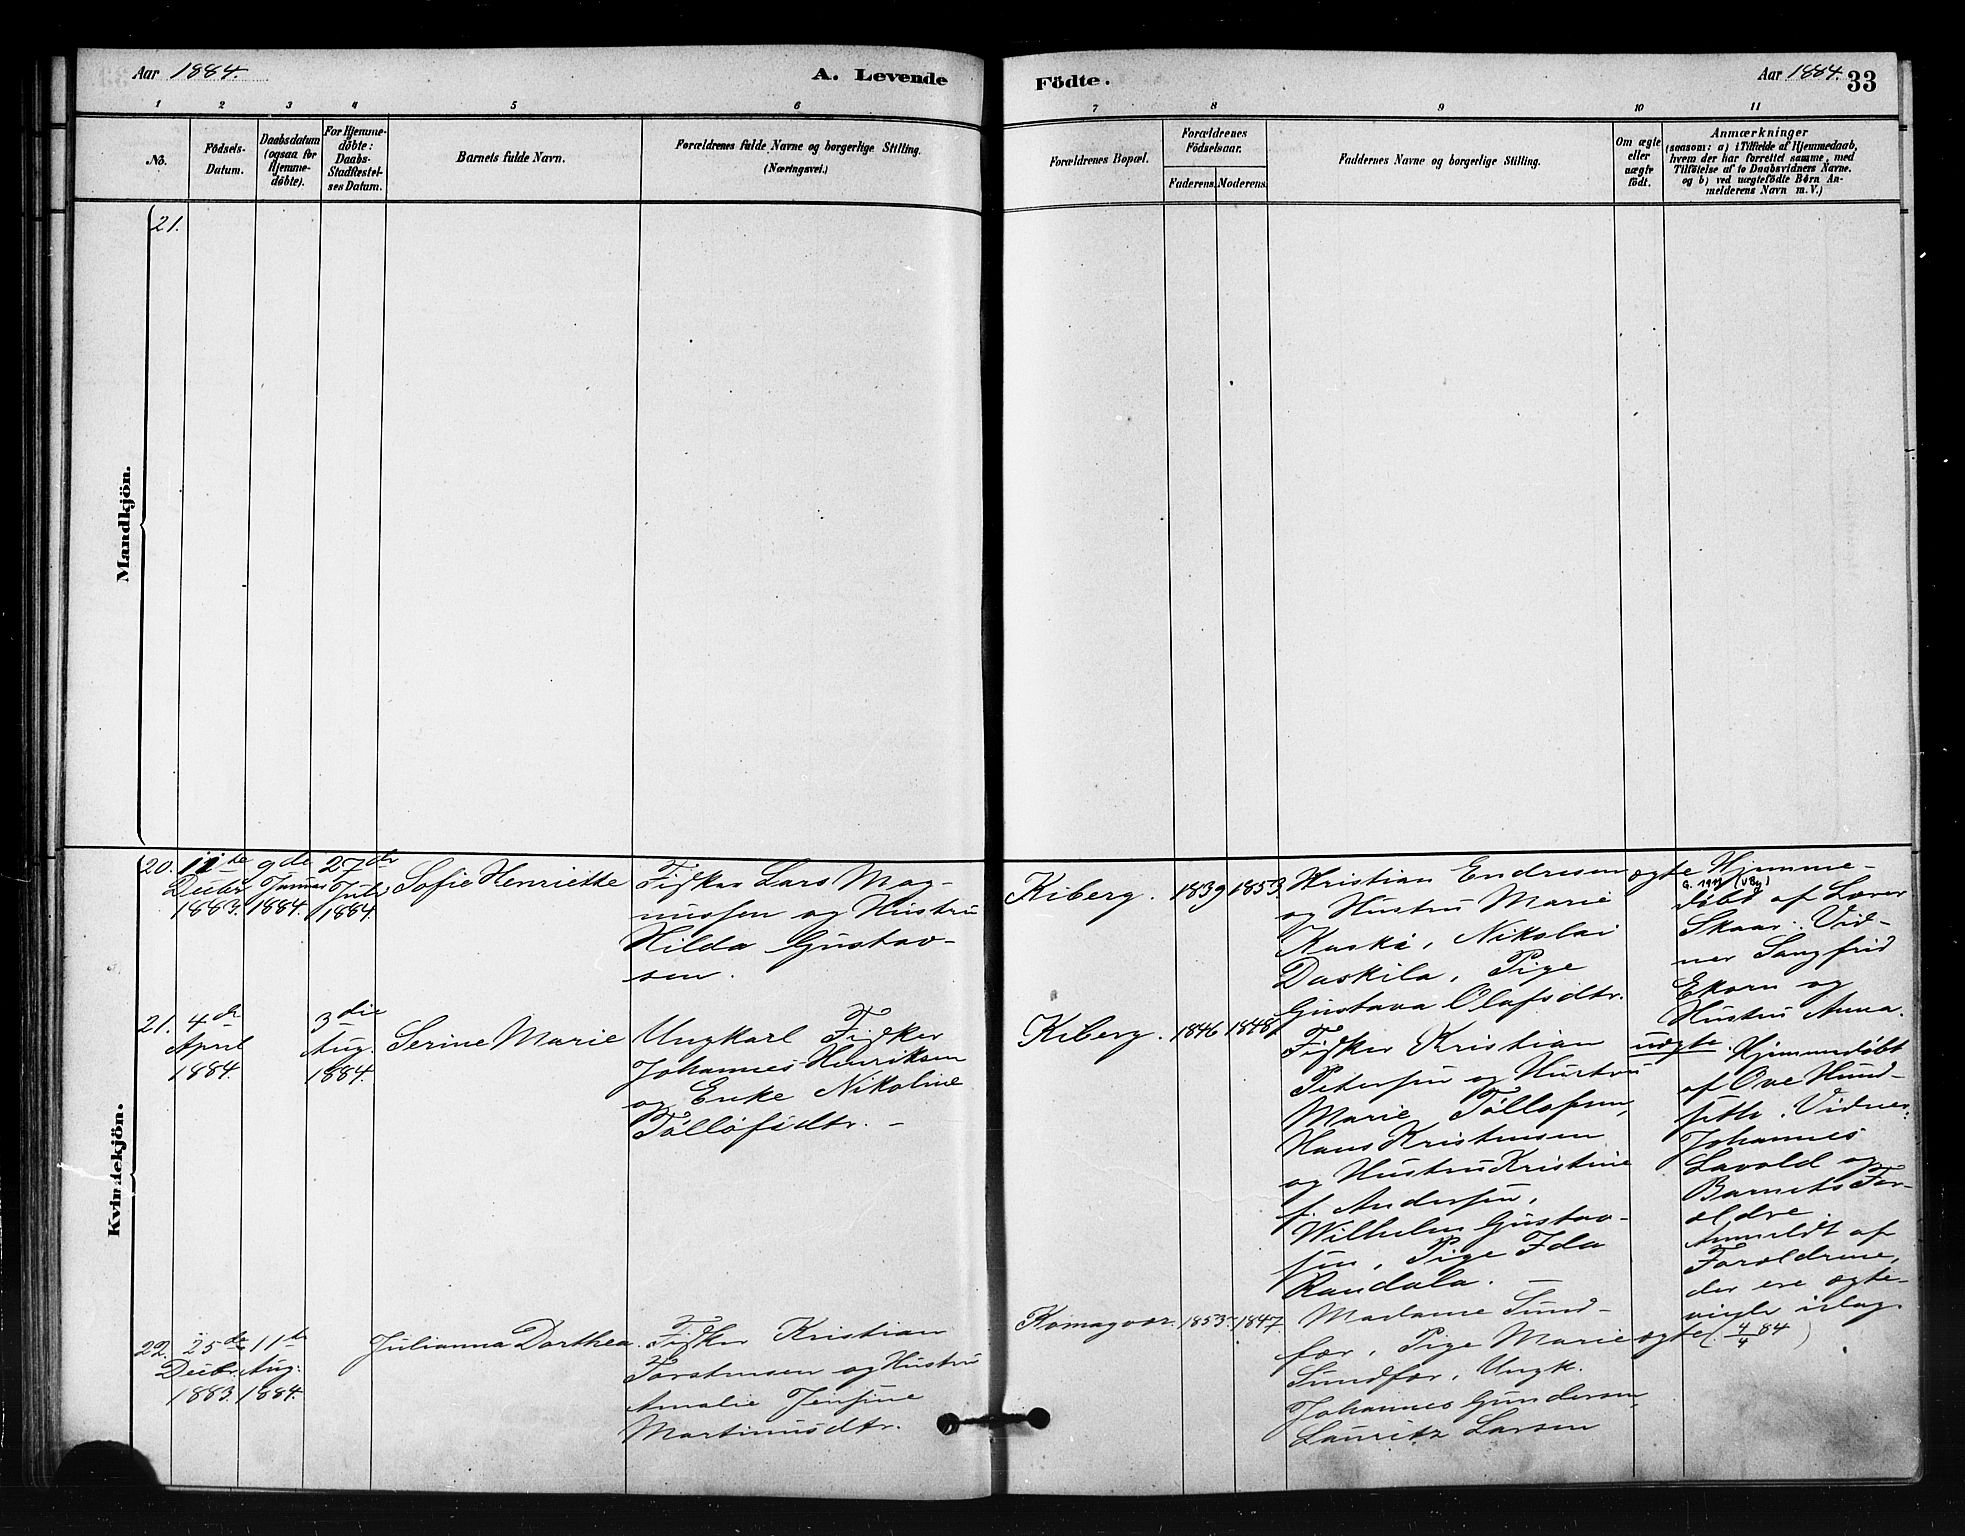 Aar 1884.
A. Levende
Födte.
Aar 1884.
33
1 2 3 4 5 6 7 8 9 10 11
No.
Födsels-Datum.
Daabsdatum (ogsaa for Hjemme-döbte).
For Hjemme-döbte: Daabs-Stadfæstel-ses Datum.
Barnets fulde Navn.
Forældrenes fulde Navne og borgerlige Stilling.
(Næringsvei.)
Forældrenes Bopæl.
Forældrenes Födselsaar.
Faderens. Moderens.
Faddernes Navne og borgerlige Stilling.
Om ægte eller uægte födt.
Anmærkninger
(saasom: a) i Tilfælde af Hjemmedaab,
hvem der har forrettet samme, med
Tilföielse af to Daabsvidners Navne.
og b) ved uægtefödte Börn An-
melderens Navn m.V.)
Mandkjön.
21.
Kvindekjön.
20.
11te
Decbr
1883.
9de
Januar
1884.
27de
Juli
1884.
Sofie Henriette
Fisker Lars Mag-
nussen og Hustru
Hilda Gustav-
sen.
Kiberg.
1839
1853.
Kristian Endresen
og Hustru Marie
Kaski, Nikolai
Daskila, Pige
Gustava Olafsdtr.
ægte
Hjemme-
G. 1909 (VBy)
døbt af Lærer
Skaar. Vid-
ner Sangfrid
Ekorn og
Hustru Anna.
21.
4de
April
1884.
3die
Aug.
1884.
Serine Marie
Ungkarl Fisker
Johannes Henriksen
og Enke Nikoline
Tøllefsdtr. -
Kiberg.
1846
1848
Fisker Kristian
Petersen og Hustru
Marie Tøllefsen,
Hans Kristensen
og Hustru Kristine
f. Andersen,
Wilhelm Gustav-
sen, Pige Ida
Randala. -
uægte.
Hjemmedøbt
af Ove Hund-
seth. Vidner:
Johannes
Lavold og
Barnets For-
ældre
Anmeldt af
Forældrene,
der ere ægte-
viede idag.
(4/4 84)
22.
25de
Decbr.
1883.
11te
Aug:
1884.
Julianna Dorthea.
Fisker Kristian
Torstensen og Hustru
Amalie Jensine
Martinusdtr.
Komagvær.
1853.
1847.
Madame Sund-
før, Pige Marie
Sundfør, Ungk.
Johannes Gundersen,
Lauritz Larsen
ægte